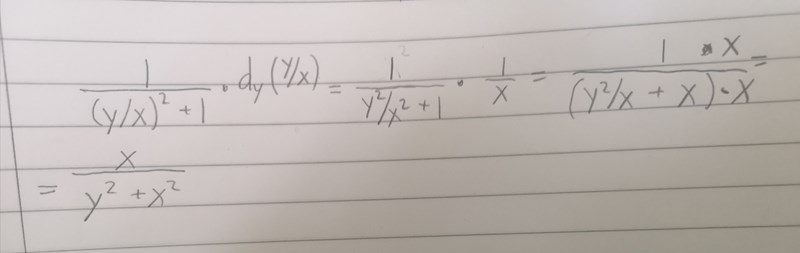 1/((y/x)² + 1) · dy(y/x) = 1/(y²/x² + 1) · 1/x = (1 · x)/((y²/x + x) · x) =
= x/(y² + x²)